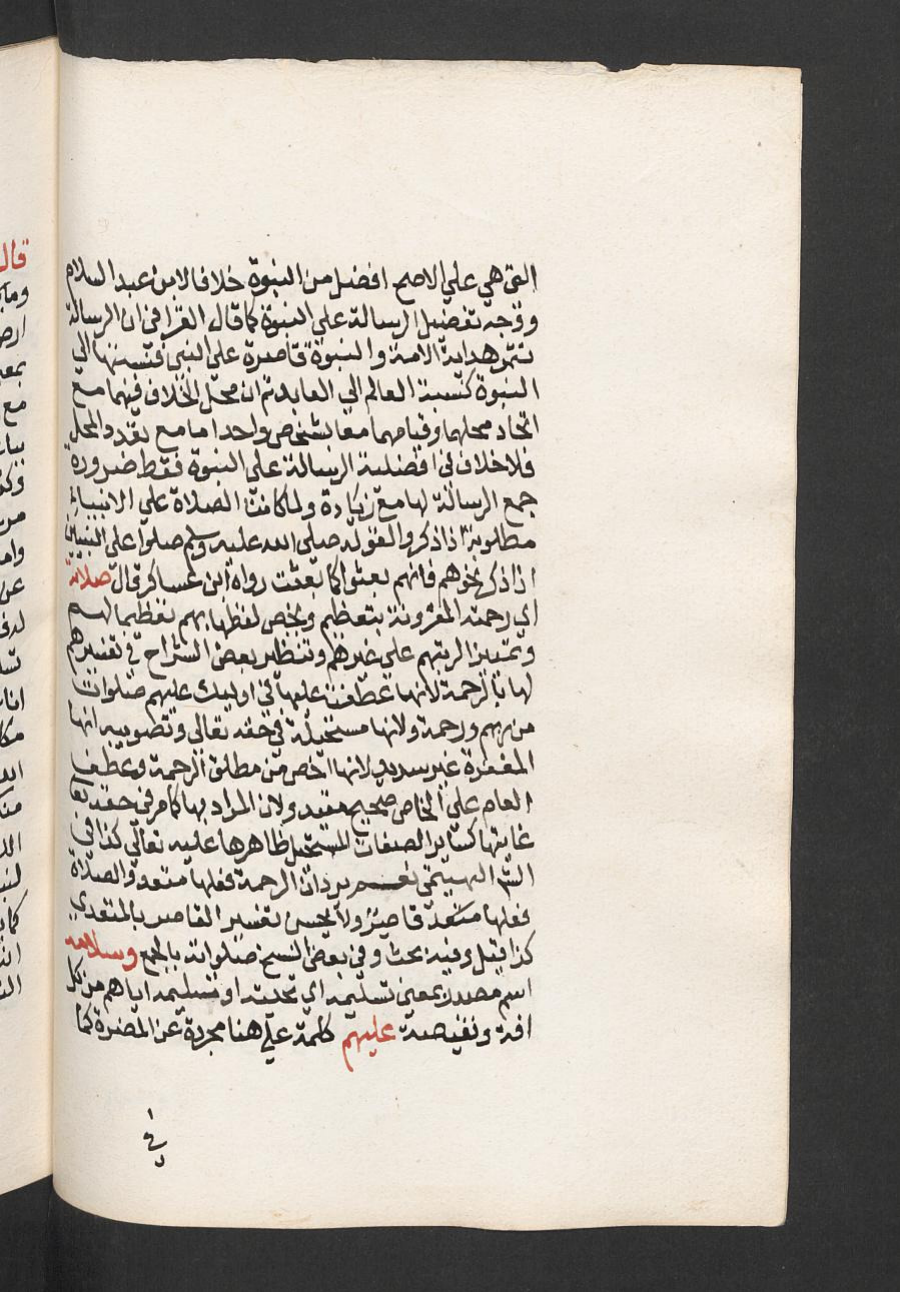 التي هي علي الاصح افضل من النبوة خلافا لابن عبد السلام
ووجه تفضيل الرسالة علي النبوة كما قال القرافي ان الرسالة
تثمر هداية الامة والنبوة قاصرة علي النبي فنسبتها الي
النبوة كنسبة العالم الي العابد ثم ان محل الخلاف فيهما مع
اتحاد محلهما وقيامهما معا بشخص واحد اما مع تعدد المحل
فلا خلاف في افضلية الرسالة علي النبوة فقط ضرورة
جمع الرسالة لها مع زيادة ولما كانت الصلاة علي الانبياء
مطلوبة اذا ذكروا لقوله صلي الله عليه وسلم صلوا علي النبيين
اذا ذكرتموهم فانهم بعثوا كما بعثت رواه ابن عساكر قال صلاته
اي رحمته المقرونة بتعظيم ويخص لفظها بهم تعظيما لهم
وتمييزا لرتبهم علي غيرهم وتنظير بعض الشراح في تفسيرهم
لها بالرحمة لانها عطفت عليها في اوليك عليهم صلوات
من ربهم ورحمة ولانها مستحيلة في حقه تعالي وتصويبه انها
المغفرة غير سديد لانها اخص من مطلق الرحمة وعطف
العام علي الخاص صحيح مفيد ولان المراد بها كما مر في حقه تعا
غايتها كساير الصفات المستحيل ظاهرها عليه تعالي كذا في
الش الهيتمي نعم يرد ان الرحمة فعلها متعد والصلاة
فعلها قاصر ولا يحسن تفسير القاصر بالمتعدي
كذا قيل وفيه بحث وفي بعض النسخ صلواته بالجمع وسلامه
اسم مصدر بمعني تسليمه اي تحيته او تسليمه اياهم من كل
افة ونقيصة عليهم كلمة علي هنا مجردة عن المضرة كما